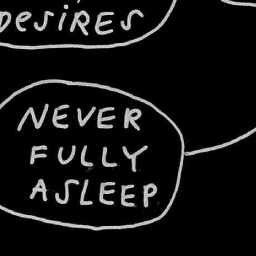 DESIRES
NEVER
FULLY
ASLEEP